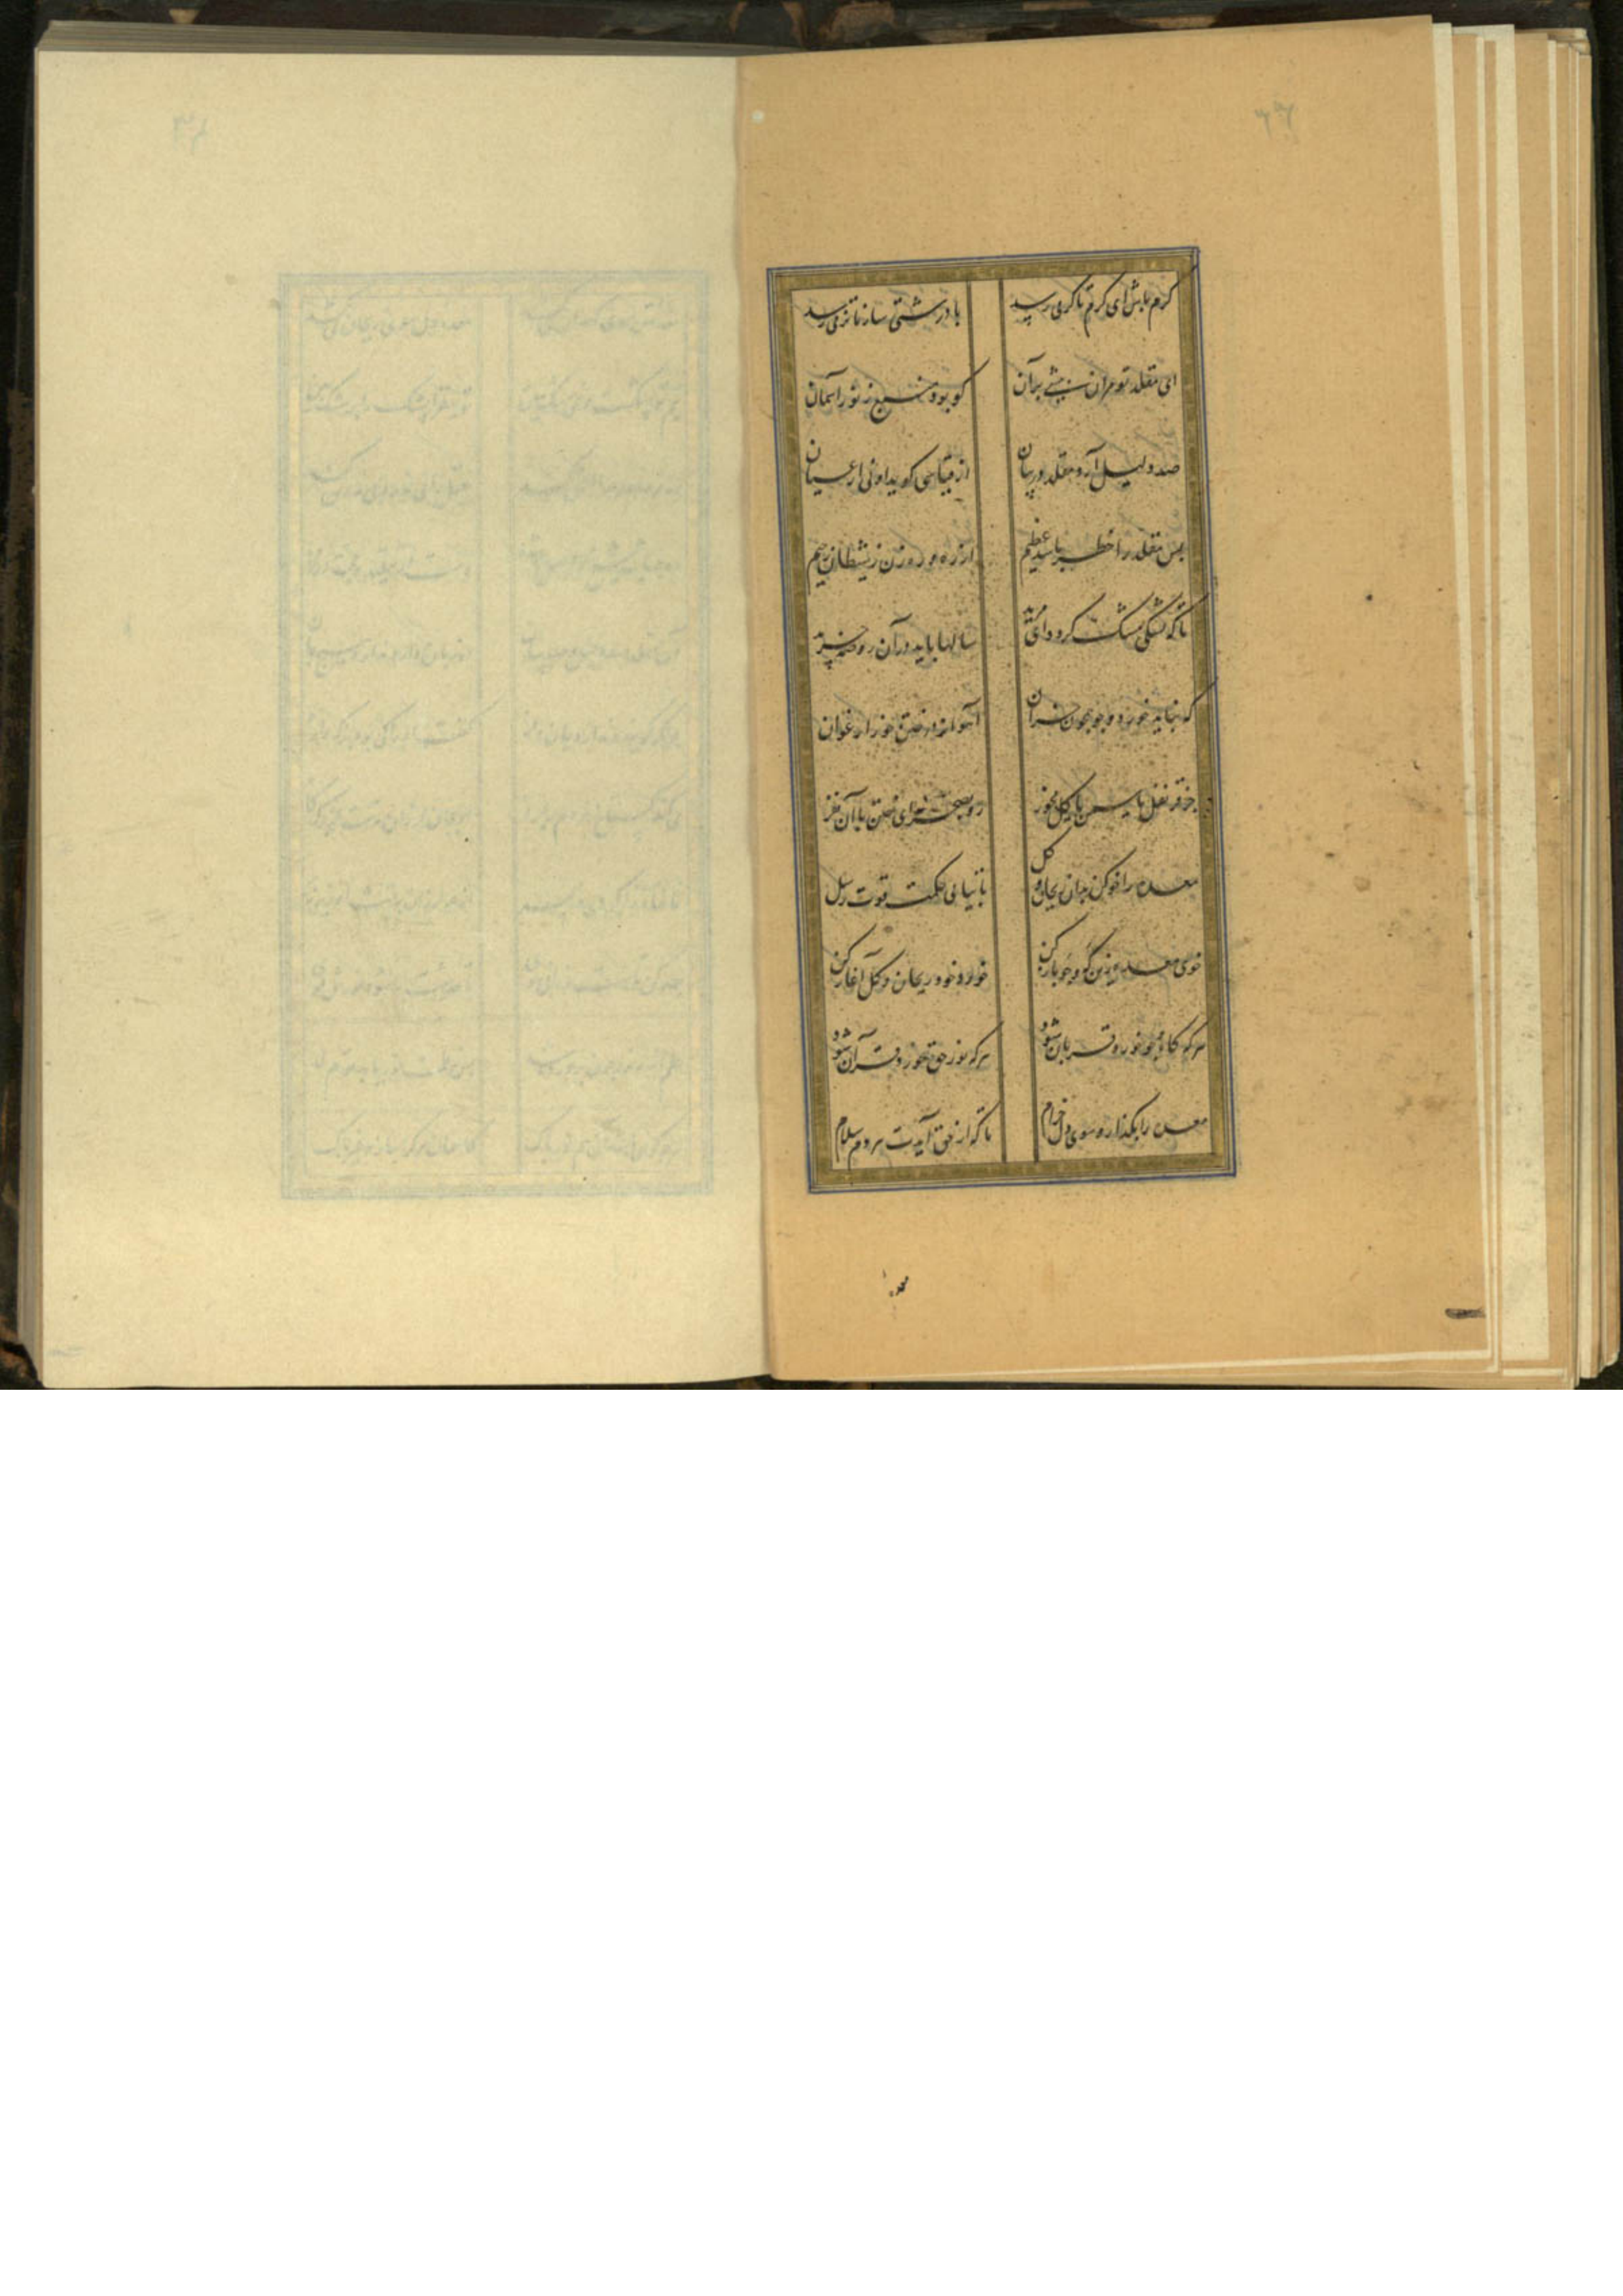 گرم باش ای گرم تا گرمی رسد با درشتی ساز تا نرمی رسد
ای مقلد تو مران پیشی بر آن کو بود منبع ز نور آسمان
صد دلیل آرد مقلد در بیان از قیاسی گوید او نی از عیان
بس مقلد را خطر باشد عظیم از ره و رهزن ز شیطان رجیم
تا که پشکی مشک گردد ای مرید سالها باید در آن روضه چرید
که نباید خورد و جو همچون خران آهوانه در ختن خور ارغوان
جز قرنفل یاسمن یا گل مچر رو بصحرای ختن با آن نفر
معده را خو کن بدان ریحان و گل تا بیابی حکمت و قوت رسل
خوی معده زین که و جو باز کن خورد خود ریحان و گل آغاز کن
هر که کاه و جو خورد قربان شود هر که نور حق خورد قرآن شود
معده را بگذار و سوی دل خرام تا که از حق آیدت هر دم سلام
معده